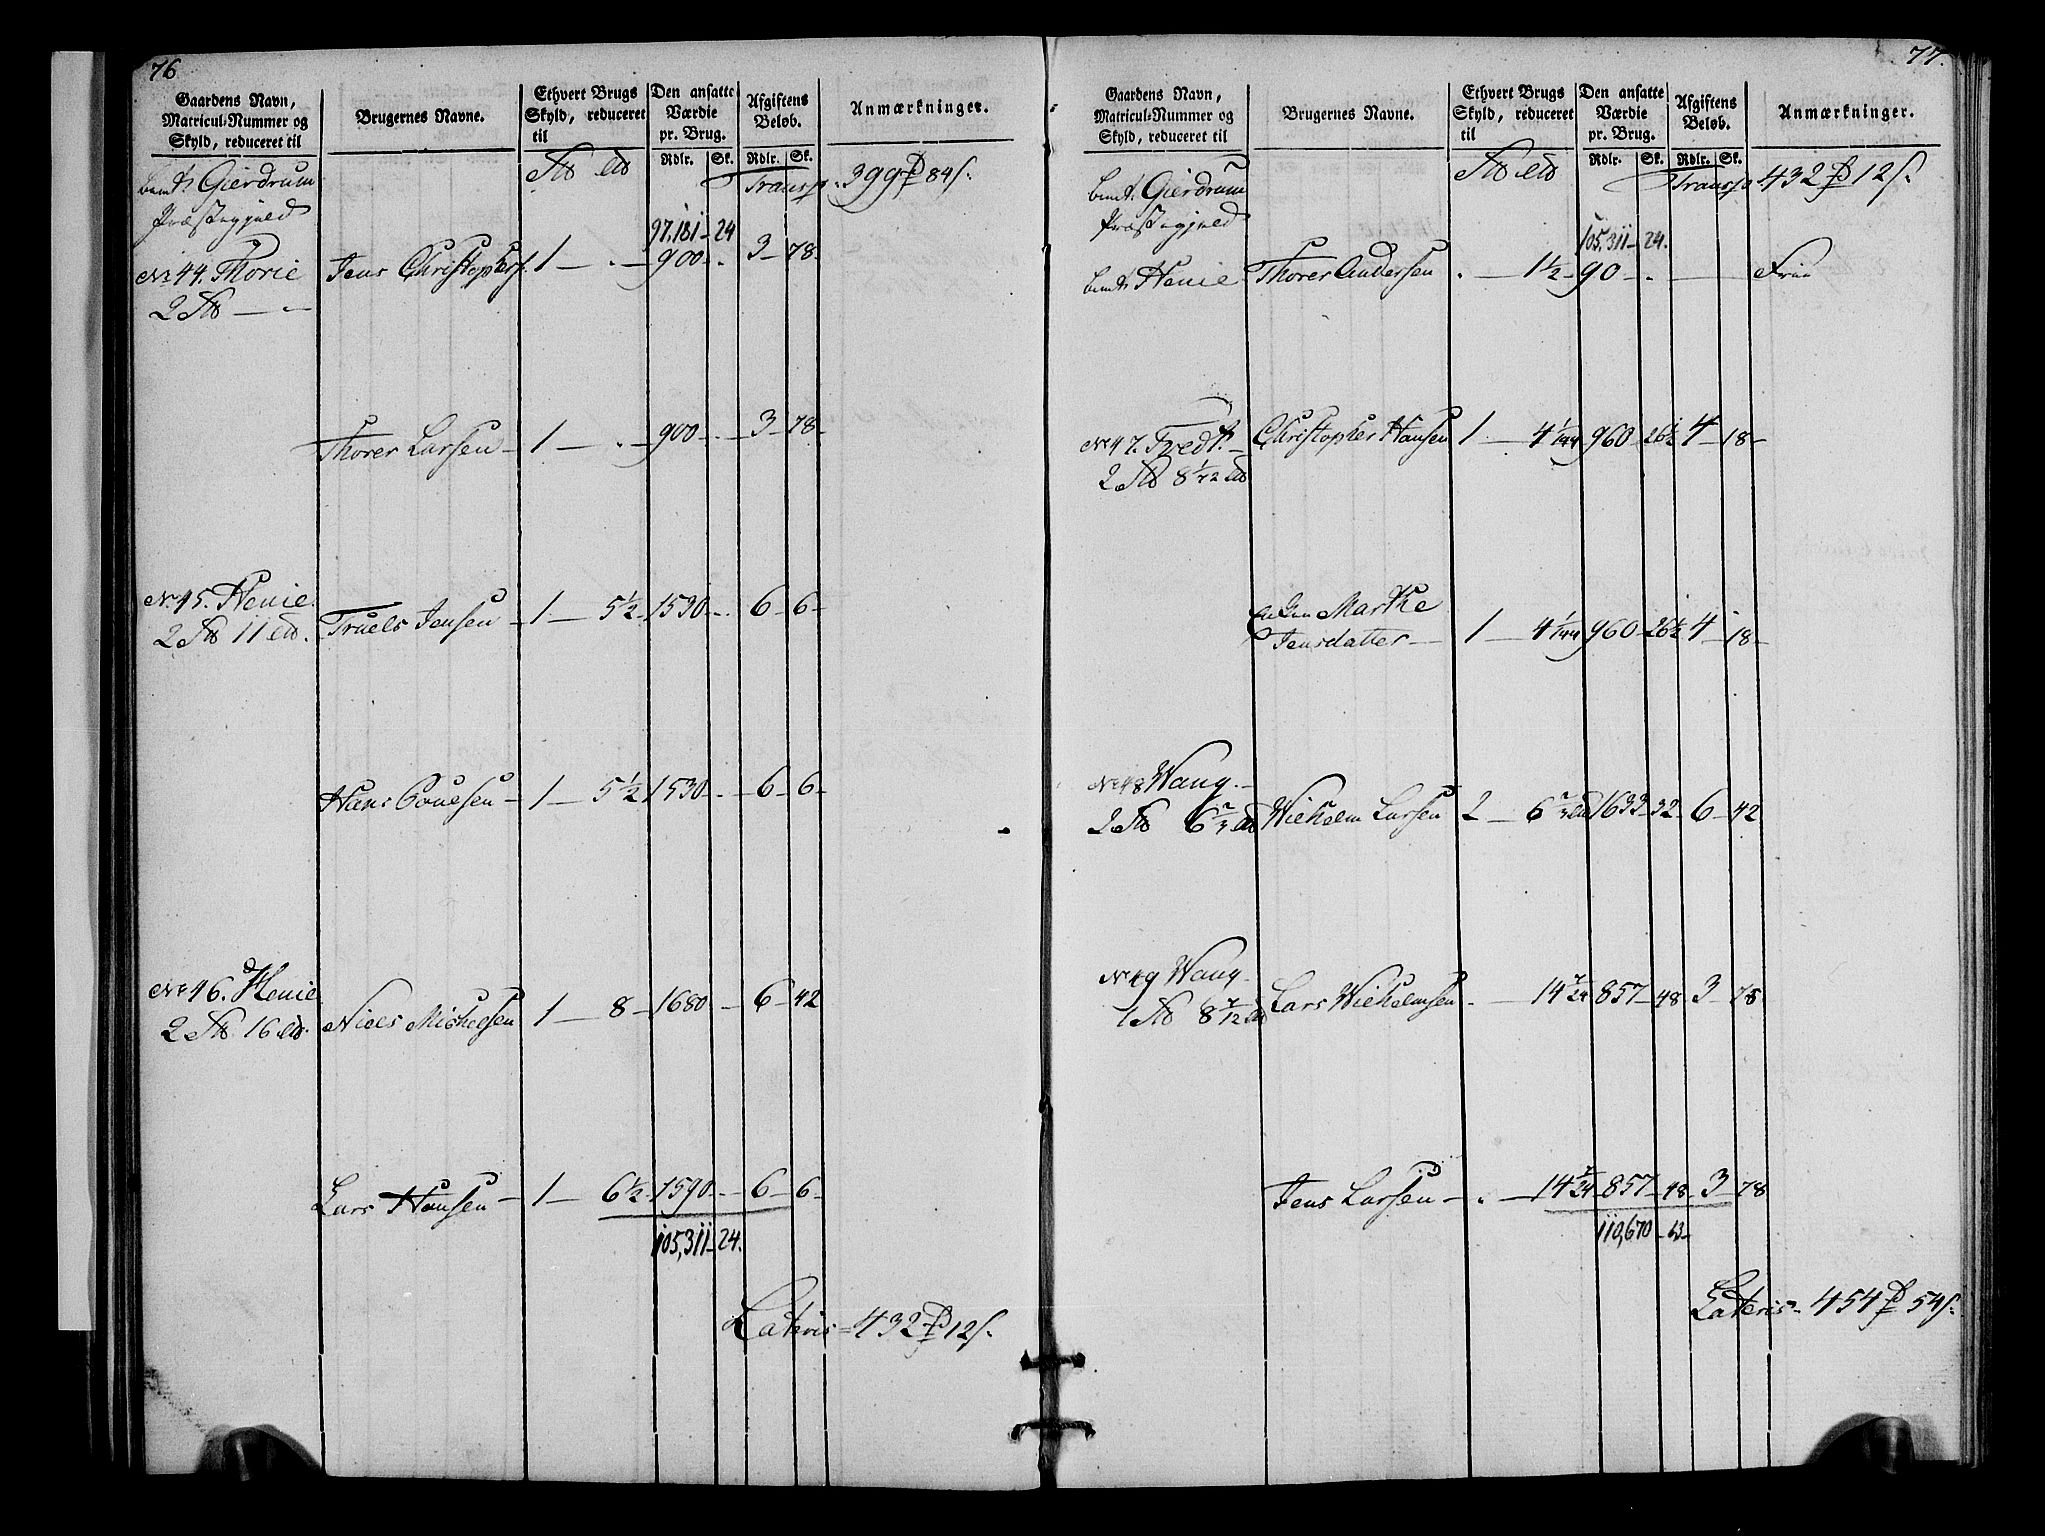 76
Gaardens Navn, Matricul-Nummer og Skyld, reduceret til
Brugernes Navne.
Ethvert Brugs Skyld, reduceret til
Den ansatte Værdie pr. Brug.
Afgiftens Beløb.
Anmærkninger.
Rdlr. Sk. Rdlr. Sk.
Gierdrum Transp. 399 84
Præstegjeld
97,181 - 24
No 44. Thorie Jens Christophers. 1 - . - 900 - . 3 - 78 -
2
Thorer Larsen - 1 - . - 900 - . - 3 - 78 -
No 45. Henie Truels Jensen - 1 - 5½ 1530 - . 6 - 6 -
2 11
Hans - 1 - 5½ 1530 - . - 6 - 6 -
No 46. Henie
2 16 Niels Michelsen 1 - 8 - 1680 - 6 - 42
Lars Hansen - 1 - 6½ 1590 - . - 6 - 6 -
105,311 - 24.
Lateris = 432 12
77.
Gaardens Navn, Matricul-Nummer og Skyld, reduceret til
Brugernes Navne.
Ethvert Brugs Skyld, reduceret til
Den ansatte Værdie pr. Brug.
Afgiftens Beløb.
Anmærkninger.
Rdlr. Sk. Rdlr. Sk.
Gierdrum Transp 432 12
Præstegjeld
105,311 - 24.
Henie Thorer Andersen . - 1½ - 90 - . - Frie
No 47. Tvedt. Christopher Hansen 1 - 4 1/144 960 - 26½ 4 - 18 -
2 8 1/72
Enken Marthe
Jensdatter - 1 - 4 1/144 960 - 26½ 4 - 18 -
No 48 Wang.
2 6 2/3 Wilhelm Larsen 2 - 6 2/3 1633 - 32 - 6 - 42
No 49 Wang.
1 8 7/12 Lars Wilhelmsen . - 14 7/24 857 - 48 3 - 78
Jens Larsen - . - 14 7/24 857 - 48 - 3 - 78
110,670 - 13 -
Lateris - 454 54